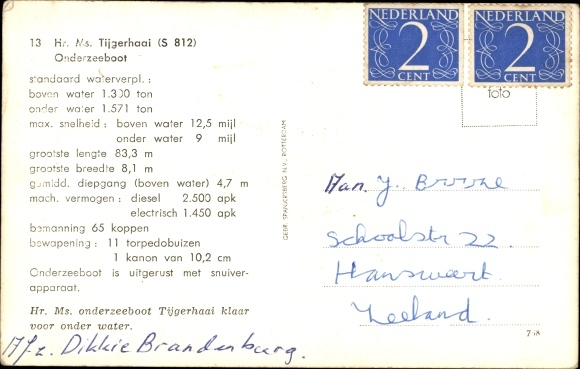 13 Hr. Ms. Tijgerhaai (S 812)
Onderzeeboot
standaard waterverpl.:
boven water 1.300 ton
onder water 1.571 ton
max. snelheid: boven water 12,5 mijl
onder water 9 mijl
grootste lengte 83,3 m
grootste breedte 8,1 m
gemidd. diepgang (boven water) 4,7 m
mach. vermogen: diesel 2.500 apk
electrisch 1.450 apk
bemanning 65 koppen
bewapening: 11 torpedobuizen
1 kanon van 10,2 cm
Onderzeeboot is uitgerust met snuiver-
apparaat.
Hr. Ms. onderzeeboot Tijgerhaai klaar
voor onder water.
Afz. Dikkie Brandenburg.
GEBR. SPANJERSBERG N.V., ROTTERDAM
NEDERLAND
2
CENT
NEDERLAND
2
CENT
foto
Aan J.
Schoolstr 22.
Hansweert.
Zeeland.